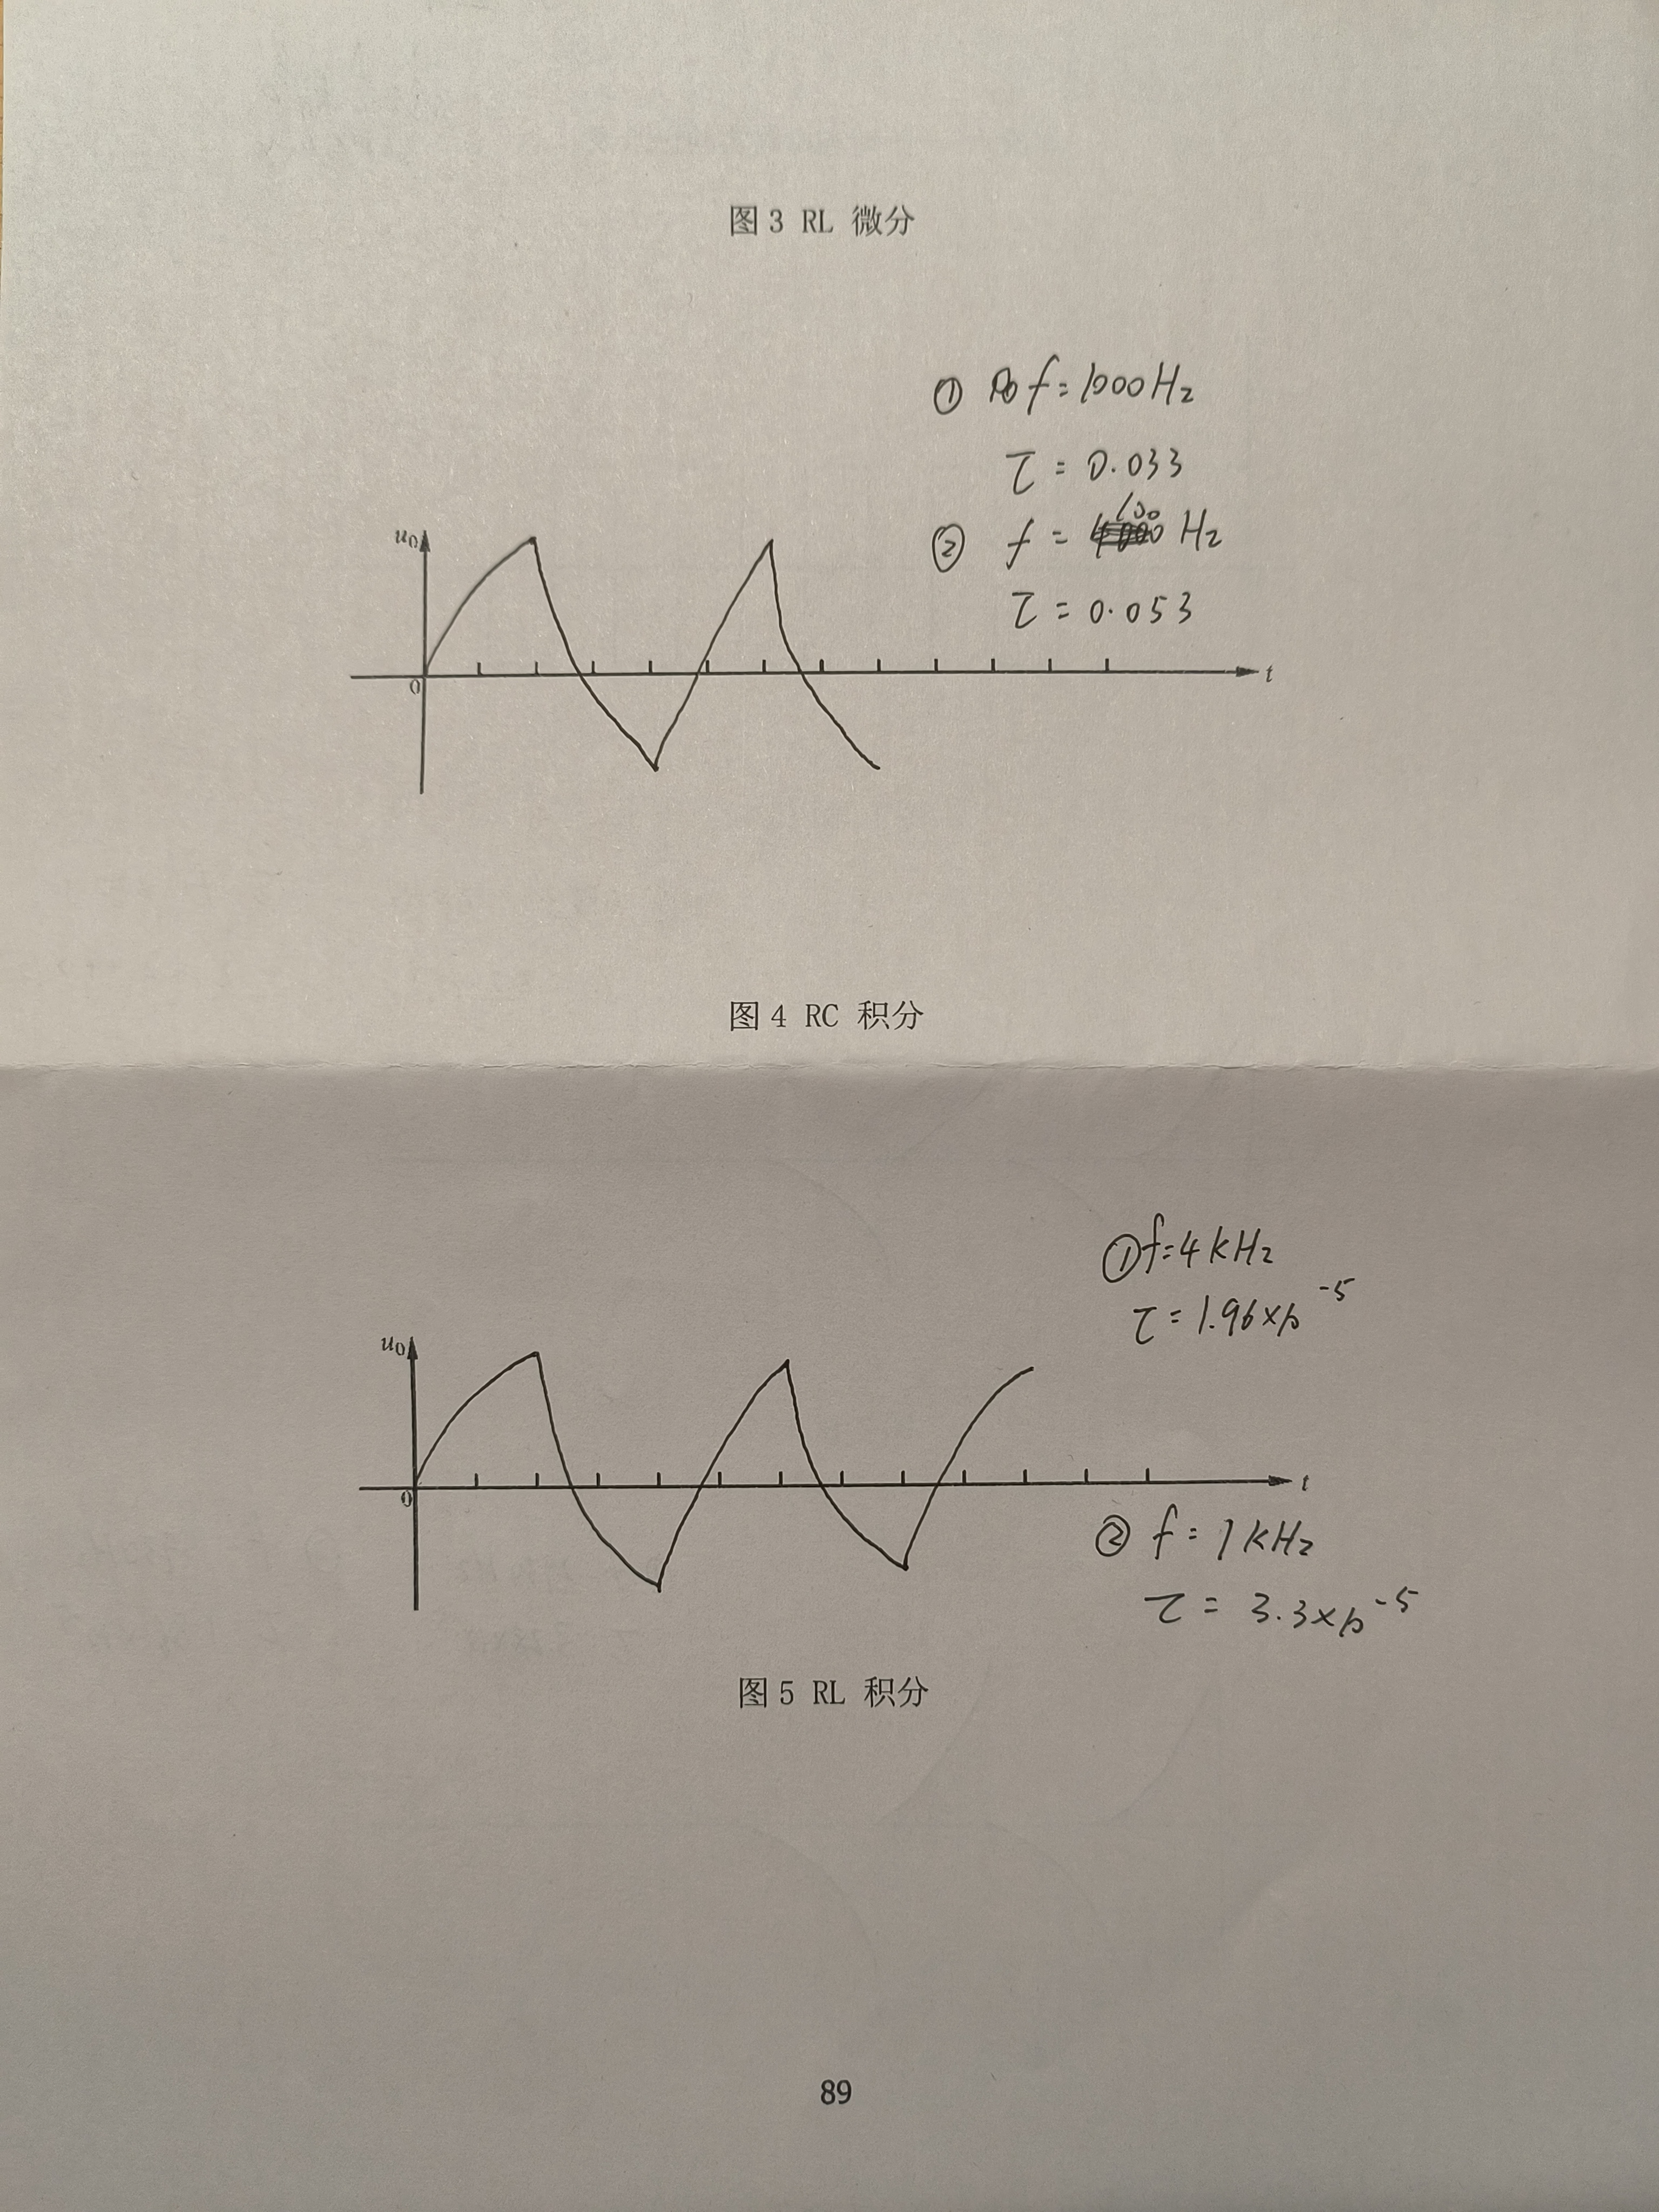 图3 RL 微分
① f=1000Hz
τ = 0.033
② f = 100 Hz
τ = 0.053
u0
0
t
图4 RC 积分
① f=4kHz
τ = 1.96×10⁻⁵
u0
0
t
② f = 1kHz
τ = 3.3×10⁻⁵
图5 RL 积分
89